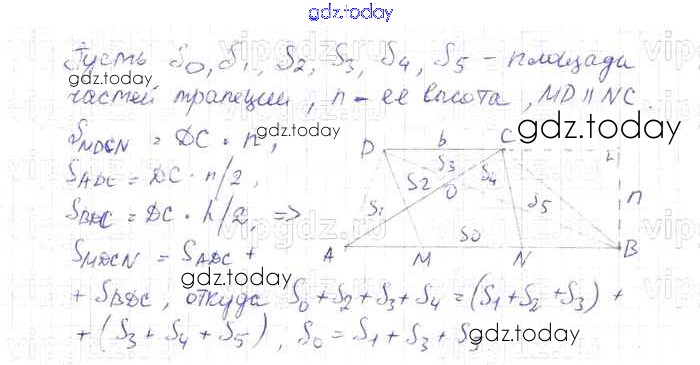 gdz.today
Пусть S0, S1, S2, S3, S4, S5 – площади
gdz.today
частей трапеции, h – ее высота, MD || NC.
gdz.today
SMDCN = DC · h,
gdz.today
SADC = DC · h/2,
SBDC = DC · h/2, =>
SMDCN = SADC +
gdz.today
+ SBDC, откуда S0 + S2 + S3 + S4 = (S1 + S2 + S3) +
+ (S3 + S4 + S5), S0 = S1 + S3 + S5
gdz.today
D b C L
S3
S2 O S4
S1 S5 h
S0
A M N B